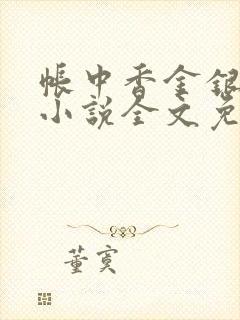 帐中香金银
小说全文免
董寞